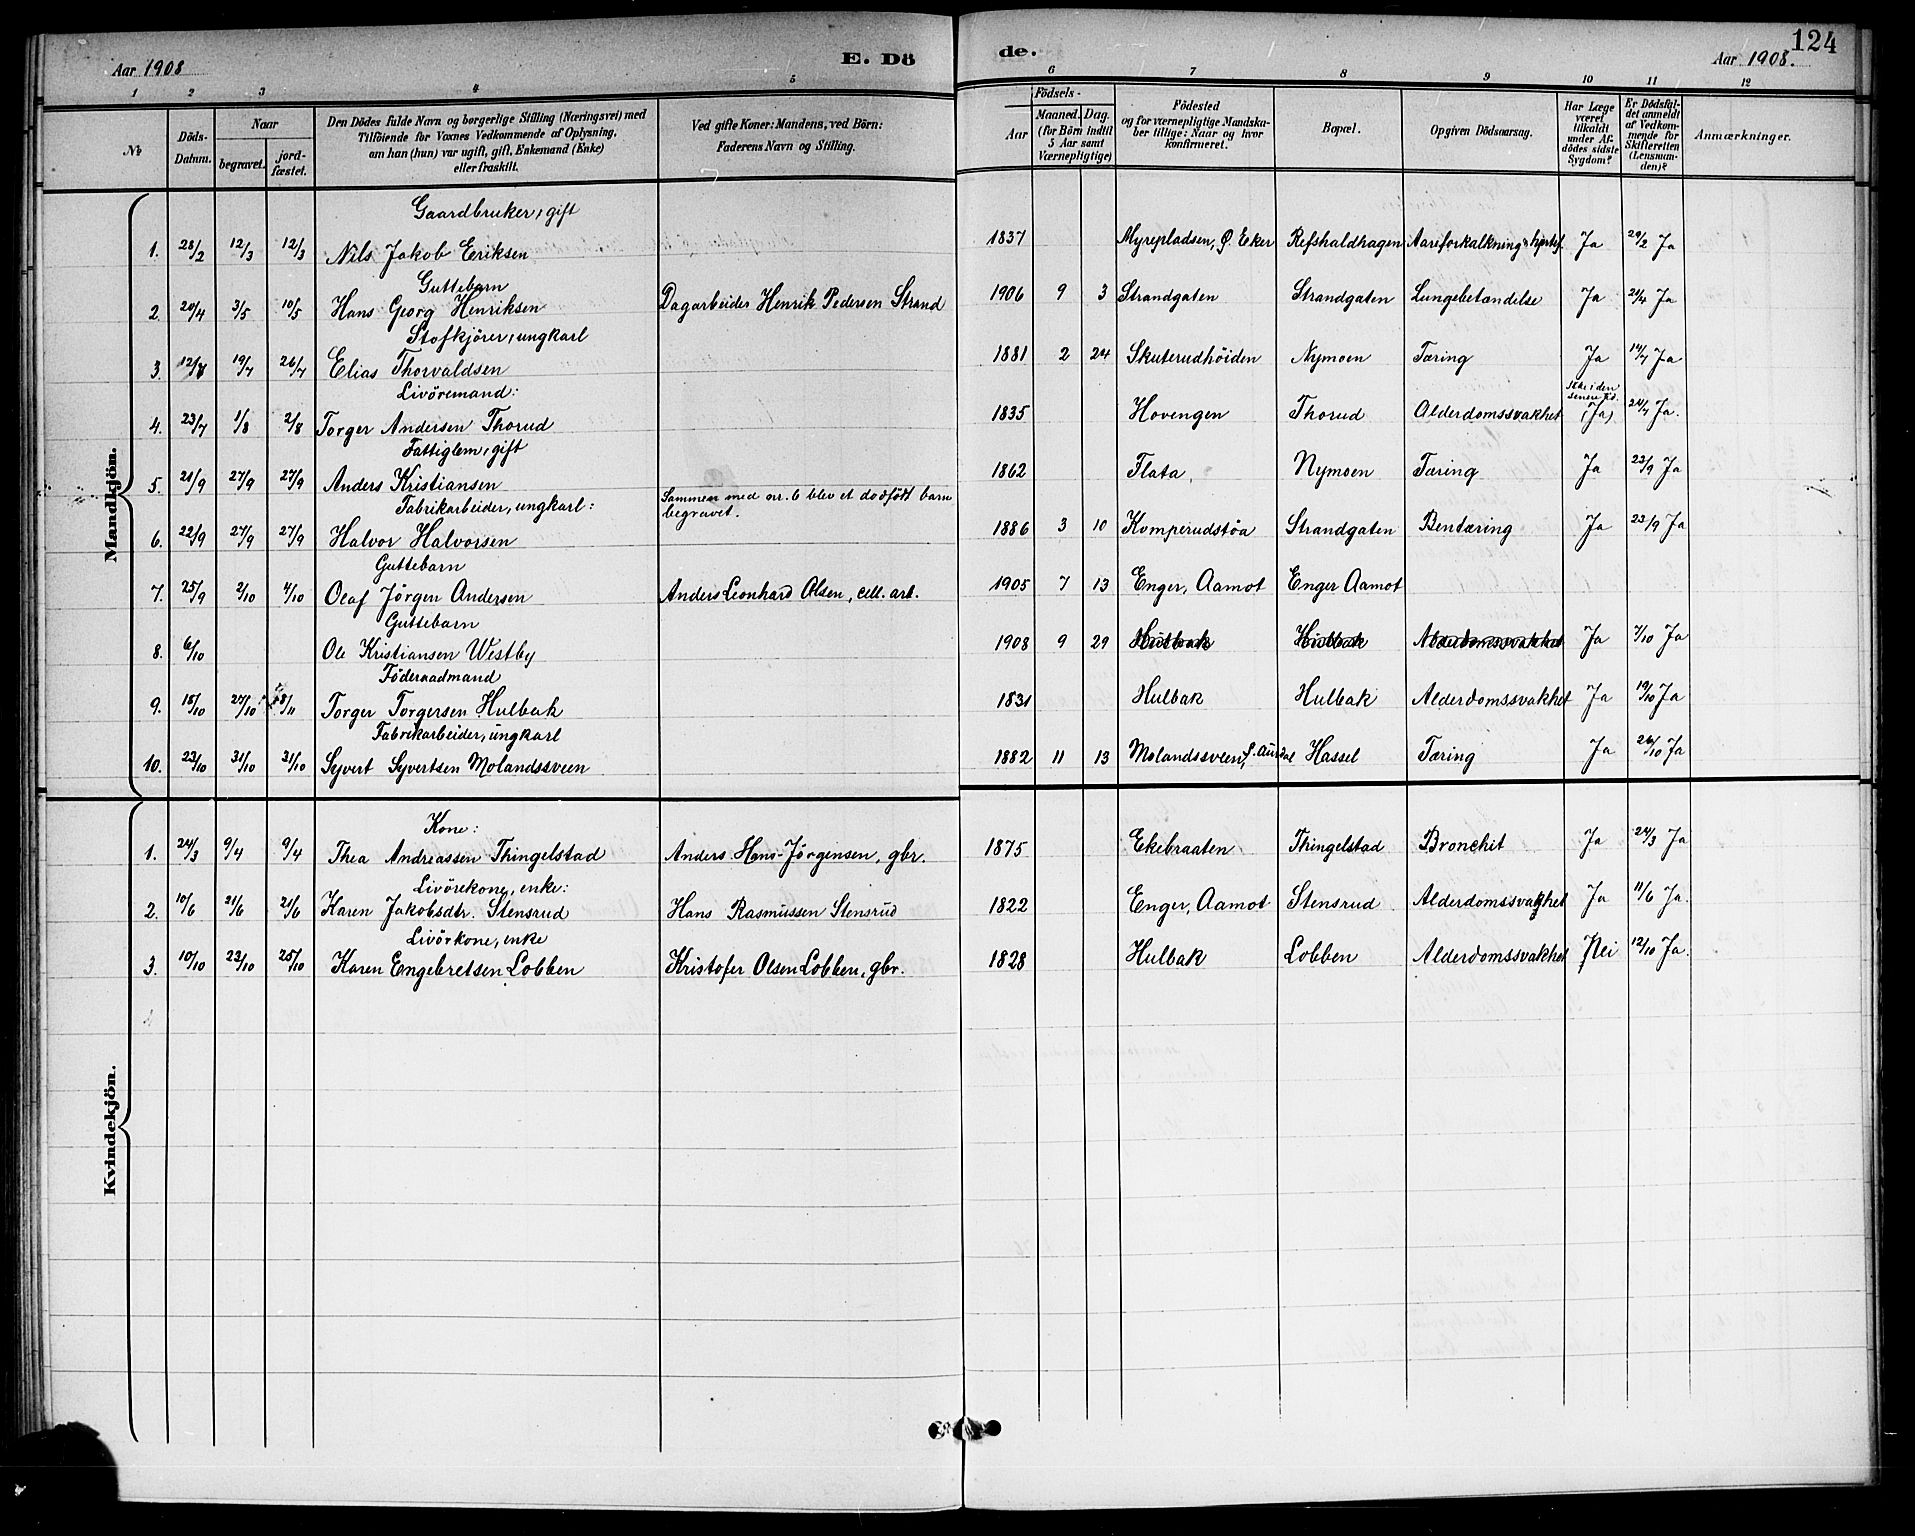 124
Aar 1908 E. Dö de. Aar 1908.
1 2 3 4 5 6 7 8 9 10 11 12
№
Döds-Datum.
Naar
begravet.
jordfæstet.
Den Dödes fulde Navn og borgerlige Stilling (Næringsvei) med
Tilföiende for Voxnes Vedkommende af Oplysning,
om han (hun) var ugift, gift, Enkemand (Enke)
eller fraskilt.
Ved gifte Koner: Mandens, ved Börn:
Faderens Navn og Stilling.
Födsels-
Aar
Maaned. Dag.
(for Börn indtil
5 Aar samt
Værnepligtige)
Födested
og for værnepligtige Mandskaber tillige: Naar og hvor
konfirmeret.
Bopæl.
Opgiven Dödsaarsag.
Har Læge
været
tilkaldt
under Afdödes sidste
Sygdom?
Er Dödsfaldet anmeldt
af Vedkommende for
Skifteretten
(Lensmanden)?
Anmærkninger.
Mandkjön.
Gaardbruker, gift
1. 28/2 12/3 12/3 Nils Jakob Eriksen 1837 Myrepladsen, Ø. Eker Refshaldhagen Aareforkalkning Ja 29/2 Ja
Guttebarn
2. 20/4 3/5 10/5 Hans Georg Henriksen Dagarbeider Henrik Pedersen Strand 1906 9 3 Strandgaten Strandgaten Lungebetændelse Ja 21/4 Ja
Stofkjörer, ungkarl
3. 12/7 19/7 26/7 Elias Thorvaldsen 1881 2 24 Skuterudhöiden Nymoen Tæring Ja 14/7 Ja
Livöremand:
4. 23/7 1/8 2/8 Torger Andersen Thorud 1835 Hovengen Thorud Alderdomssvakhet Ikke i den senere tid. (Ja) 24/7 Ja.
Fattiglem, gift
5. 21/9 27/9 27/9 Anders Kristiansen 1862 Flata Nymoen Tæring Ja 23/9 Ja
Sammen med nr. 6 blev et dödfödt barn
begravet.
Fabrikarbeider, ungkarl:
6. 22/9 27/9 27/9 Halvor Halvorsen 1886 3 10 Komperudstöa Strandgaten Bentæring Ja 23/9 Ja
Guttebarn
7. 25/9 2/10 4/10 Olaf Jörgen Andersen Anders Leonhard Olsen, cell. arb. 1905 7 13 Enger, Aamot Enger Aamot
Guttebarn
8. 6/10 Ole Kristiansen Westby 1908 9 29 Hulbak Hulbak Alderdomssvakhet Ja 7/10 Ja
Föderaadmand
9. 18/10 27/10 8/11 Torger Torgersen Hulbak 1831 Hulbak Hulbak Alderdomssvakhet Ja 19/10 Ja
Fabrikarbeider, ungkarl
10. 23/10 31/10 31/10 Syvert Syvertsen Molandssveen 1882 11 13 Molandssveen, S. Aurdal Hassel Tæring Ja 26/10 Ja
Kvindekjön.
Kone:
1. 24/3 9/4 9/4 Thea Andreassen Thingelstad Anders Hans-Jörgensen, gbr. 1875 Ekebraaten Thingelstad Bronchit Ja 24/3 Ja
Livörekone, enke:
2. 10/6 21/6 21/6 Karen Jakobsdtr. Stensrud Hans Rasmussen Stensrud 1822 Enger, Aamot Stensrud Alderdomssvaghet Ja 11/6 Ja.
Livörkone, enke
3. 10/10 23/10 25/10 Karen Engebretsen Lobben Kristofer Olsen Lobben, gbr. 1828 Hulbak Lobben Alderdomssvakhet Nei 12/10 Ja.